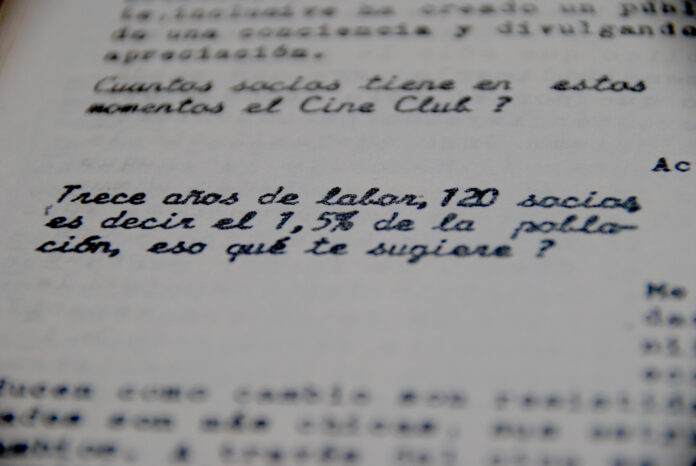 te, inclusive ha creado un públ
de una conciencia y divulgando
apreciación.
Cuantos socios tiene en estos
momentos el Cine Club ?
Ac
Trece años de labor, 120 socios,
es decir el 1,5% de la pobla-
ción, eso qué te sugiere ?
Me
de
ducen como cambio son
son más chicas,
A través